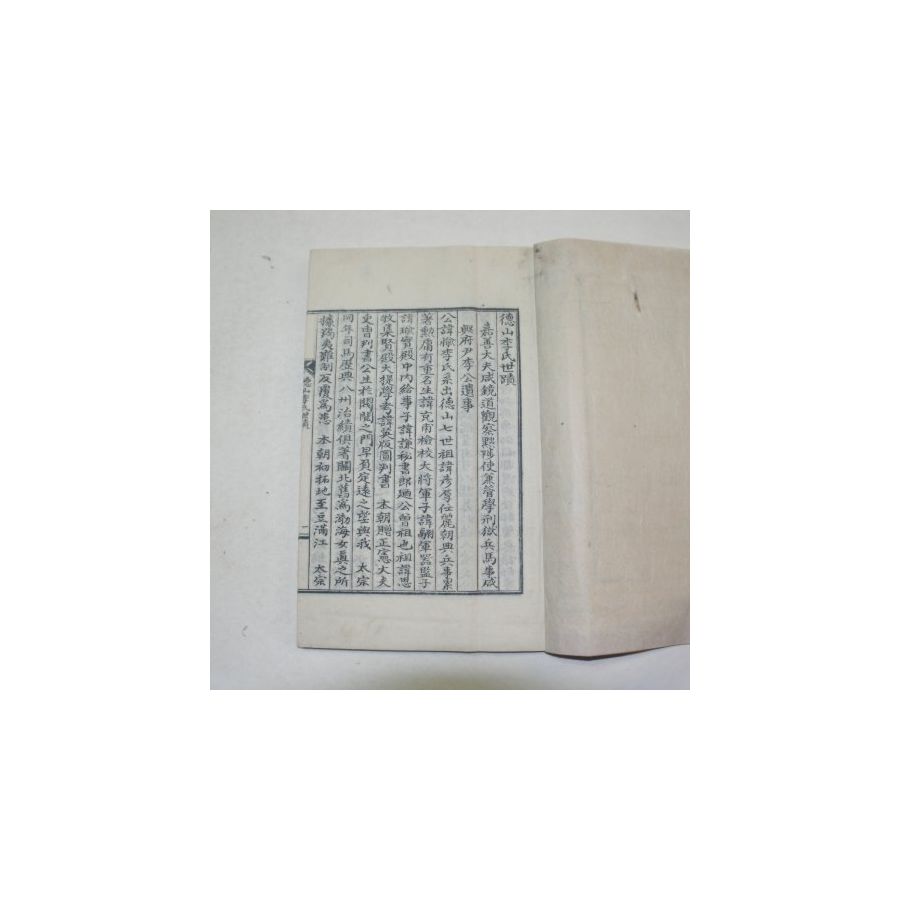 德山李氏世蹟
嘉善大夫咸鏡道觀察黜陟使兼管學刑獄兵馬事咸
興府尹李公遺事
公諱 李氏系出德山七世祖諱彦厚仕麗朝典兵事累
著勳庸有重名生諱克甫檢校大將軍子諱 軍器監子
諱瑜寶殿中內給事子諱謙秘書郎 公曾祖也祖諱思
牧集賢殿大提學考諱英版圖判書 本朝贈正憲大夫
吏曹判書公生於閥閱之門早負定遠之望與我 太宗
同年司馬歷典八州治績俱著關北舊爲渤海女眞之所
據獷夷難制反覆爲患 本朝初拓地至豆滿江 太宗
德山李氏世蹟